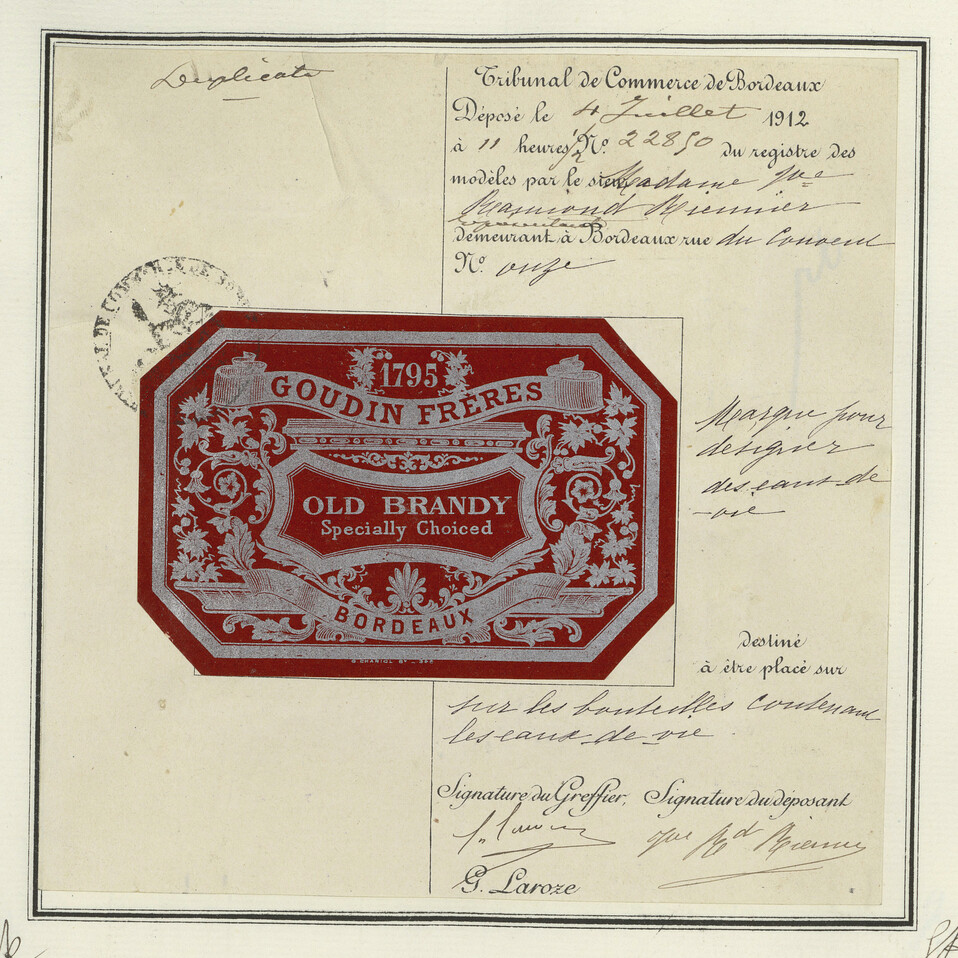 Duplicata
Tribunal de Commerce de Bordeaux
Déposé le 4 Juillet 1912
à 11 heures 1/2 No. 22850 du registre des
modèles par le sieur Madame Vve
Raymond Biennier
demeurant à Bordeaux rue du Couvent
No. onze
1795
GOUDIN FRÈRES
OLD BRANDY
Specially Choiced
BORDEAUX
Marque pour
designer
des eaux-de
-vie
destiné
à être placé sur
sur les bouteilles contenant
les eaux-de-vie
Signature du Greffier, Signature du déposant
Vve Rd
G. Laroze